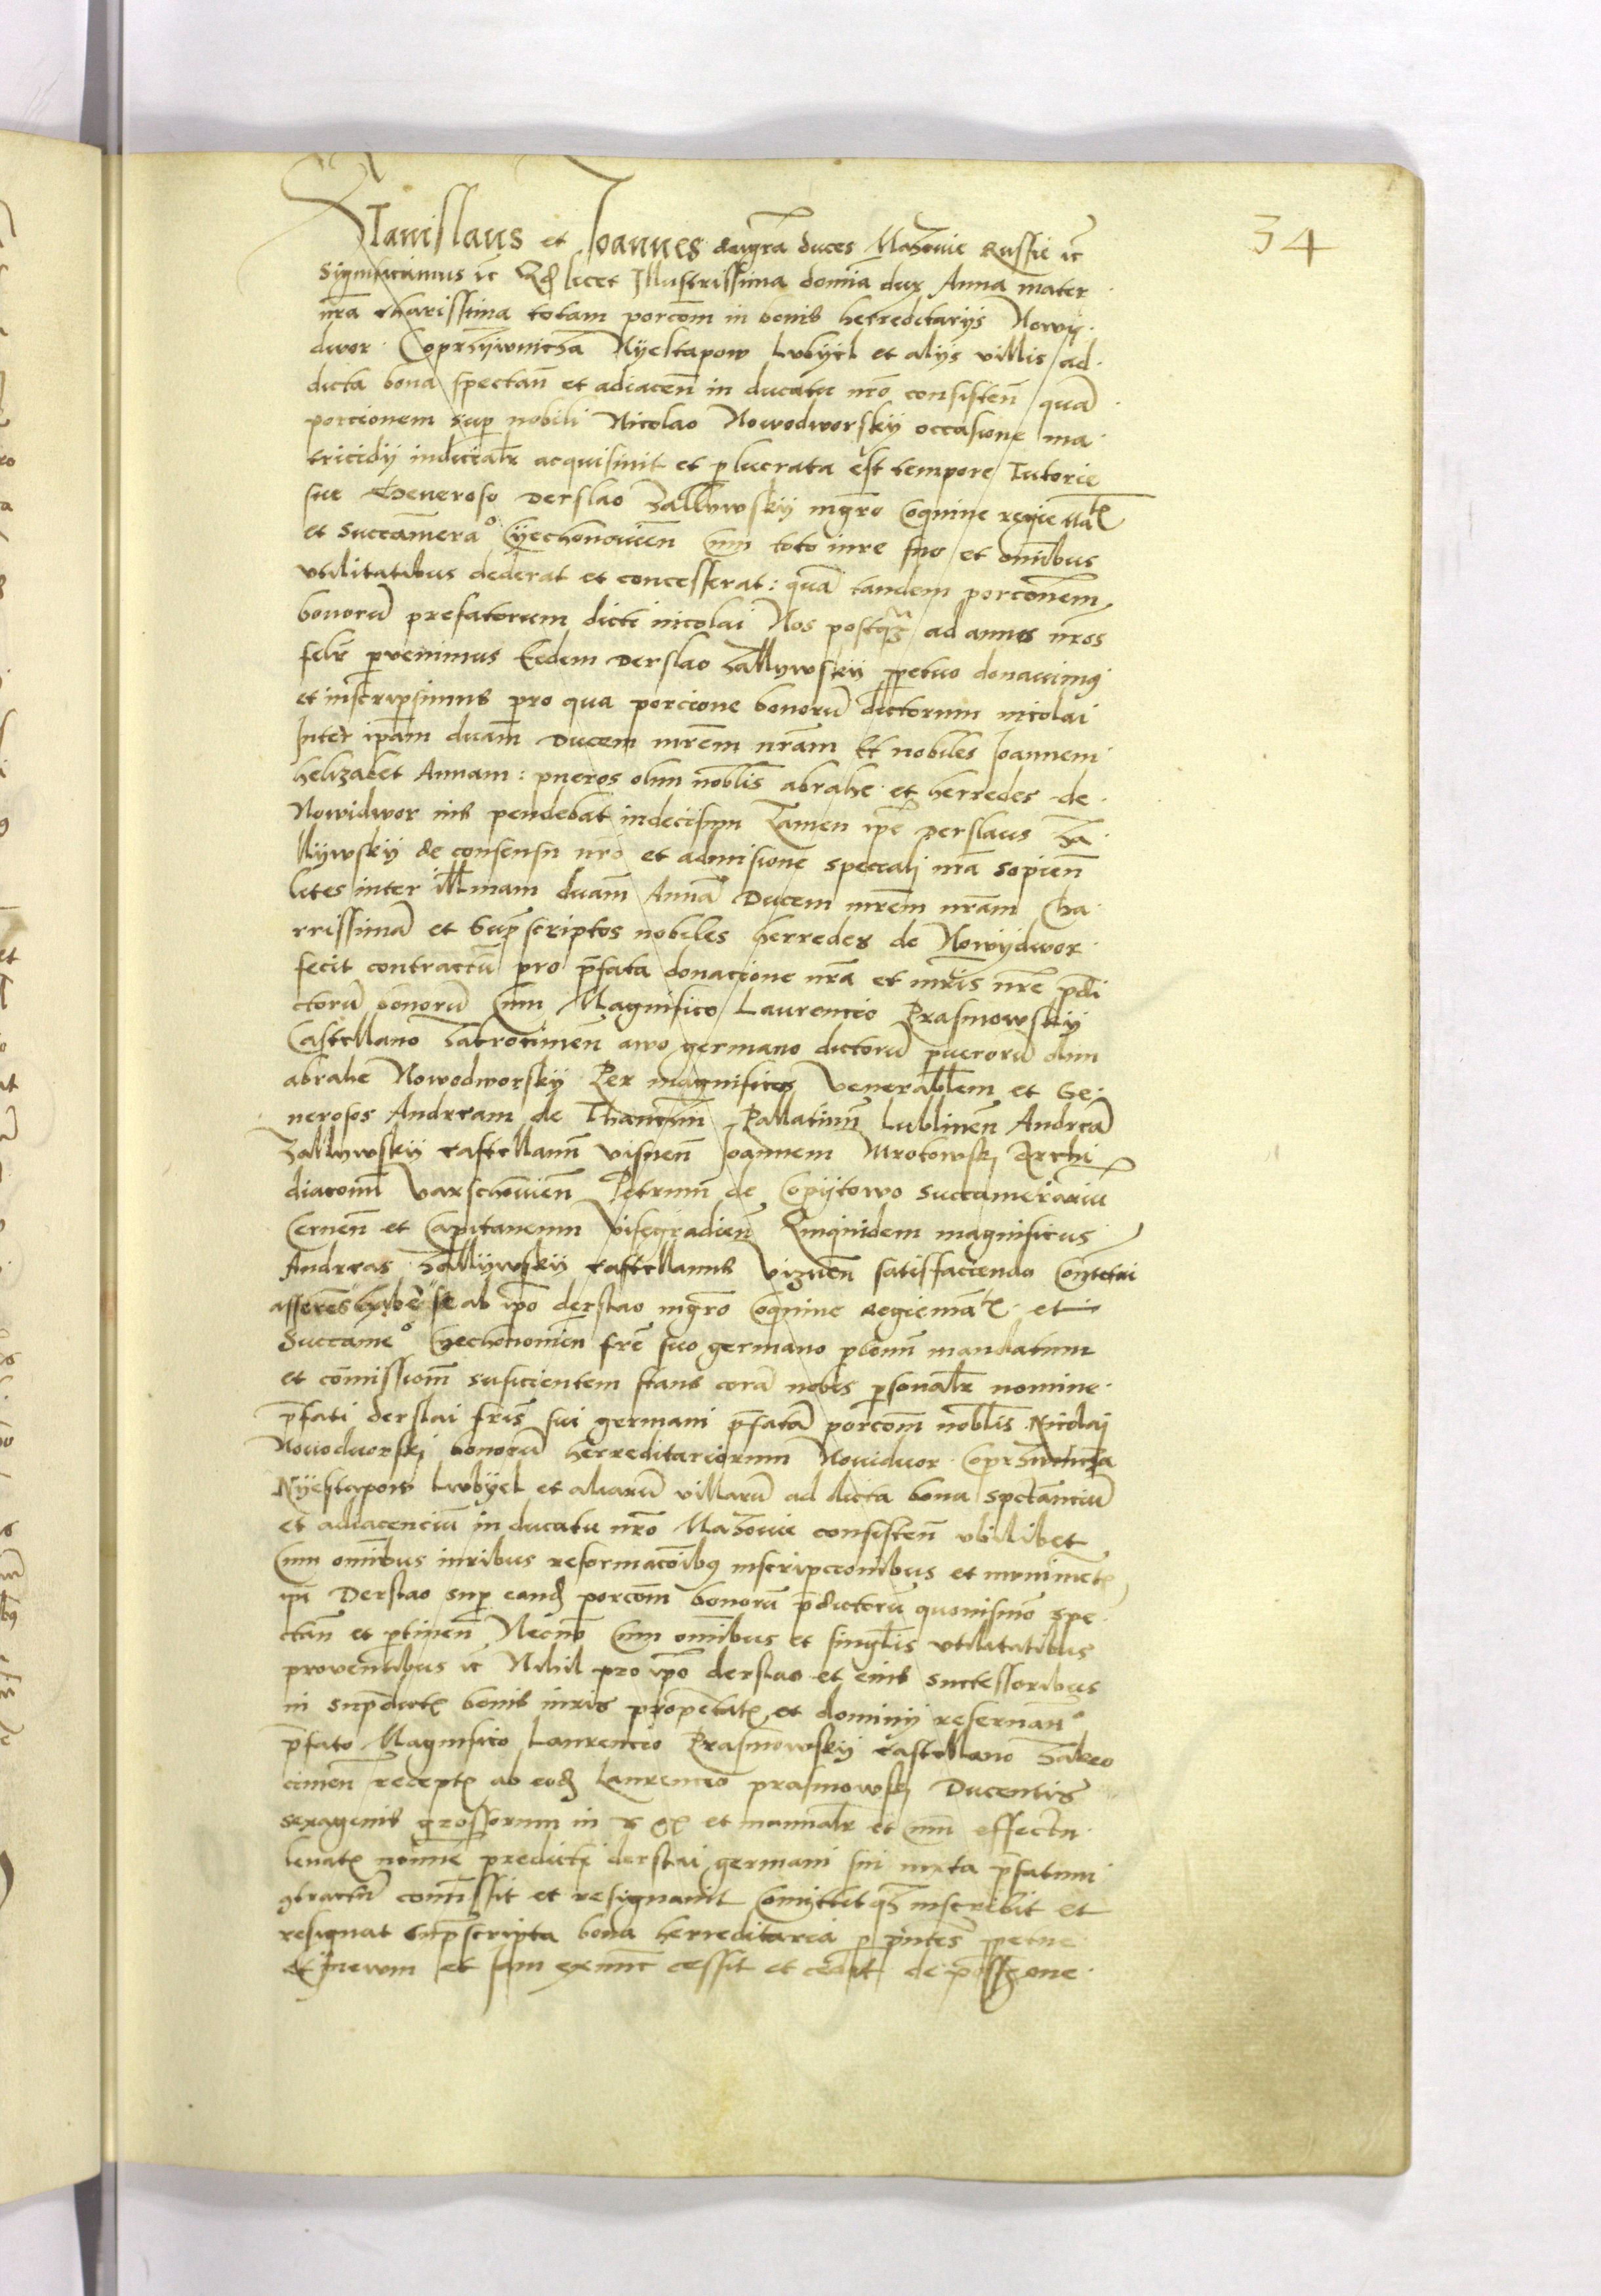 34
Stanislaus et Joannes deigra duces Mazouie Russie ec
Significamus ec Qd licet Illustrissima domia dux Anna mater
nra charissima totam porcom in bonis herreditarijs Nowy
dwor Coprzywnicza Nyestapow Lubyel et alijs villis ad
dicta bona spectan et adiacen in ducatu nro consisten qua
porcionem sup nobili Nicolao Nowodworskij occasione ma
tricidij iudicialr acquisiuit et plucrata est tempore Tutorie
sue Generoso Derslao Zallywskij mgro Coquine regie
et Succamera Cyechonowien Cum toto iure suo et omibus
vtilitatibus dederat et concesserat: qua tandem porconem
bonoru prefatorum dicti nicolai Nos postqz ad annos nros
felr peruenimus Eedem Derslao Zallywskij ppetuo donauimus
et inscripsimus pro qua porcione bonoru dictorum nicolai
Inter ipam duam Ducem mrem nram Et nobiles Joannem
helizabet Annam: pueros olim noblis abrahe et herredes de
Nowidwor ius pendebat indecisum Tamen ipe Derslaus Za
llywskij de consensu nro et admisione speccali nra sopien
lites inter illmam duam Anna Ducem mrem nram Cha
rrissima et supscriptos nobiles herredes de Nowydwor
fecit contractu pro pfata donacione nra et mris nre pdi
ctoru bonoru Cum Magnifico Laurencio Prasmowskij
Castellano Zakrocimen awo germano dictoru pueroru olim
abrahe Nowodworskij Per magnificos Venerablem et Ge
nerosos Andream de Thanczin Pallatinu Lublinen Andrea
Zallywskij castellanu visnen Joannem Mrokowskj Archi
diaconu Varschouien Petrum de Copijtowo Succamerariu
Cernen et Capitaneum Visegradien Quiquidem magnificus
Andreas Zallywskij castellanus Viznen satisfaciendo
asserens habere se ab ipo derslao mgro Coquine Regiemat et
Succame Cyechonouien fre suo germano plenu mandatum
et comissiom suficientem stans cora nobis psonalr nomine
pfati derslai fris sui germani pfata porcom noblis Nicolai
Nouoduorskj bonoru herreditariorum Nouiduor Coprzuuicza
Nyestapow Lwbyel et aliaru villaru ad dicta bona spectanciu
et adiacenciu in ducatu nro Mazouie consisten vbilibet
Cum omibus iuribus reformacoibus inscripcionibus et munimet
ipi Derslao sup eand porcom bonoru pdictoru quouismo spe
ctan et ptinen Necno Cum omibus et singlis vtilitatibus
prouentibus ec Nihil pro ipo derslao et eius successoribus
in supdict bonis iuris propetat et dominij reseruan
pfato Magnifico Laurencio Prasmowskij castellano Zakro
cimen recept ab eod Laurencio prasmowskj Ducentis
sexagenis grossorum in et manualr et cum effectu
leuat noie predicti derslai germani sui iuxta pfatum
contractu comissit et resignauit Comittitqz inscribit et
resignat supscripta bona herreditaria p pntes ppetue
et in ewm et Iam exnunc cessit et cedit de